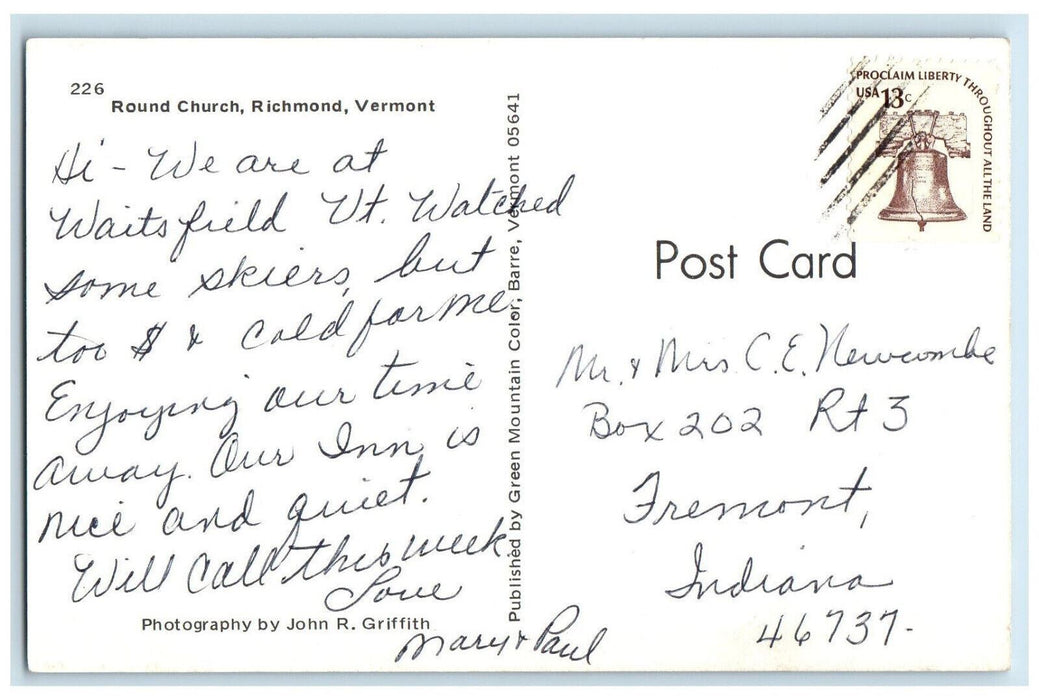 226
Round Church, Richmond, Vermont
Hi - We are at
Waitsfield Vt. Watched
some skiers, but
too $ & cold for me.
Enjoying our time
away. Our Inn is
nice and quiet.
Will call this week
Love
Mary & Paul
Photography by John R. Griffith
Published by Green Mountain Color, Barre, Vermont 05641
PROCLAIM LIBERTY THROUGHOUT ALL THE LAND
USA 13c
Post Card
Mr. & Mrs C. E. Newcombe
Box 202 Rt 3
Fremont,
Indiana
46737-